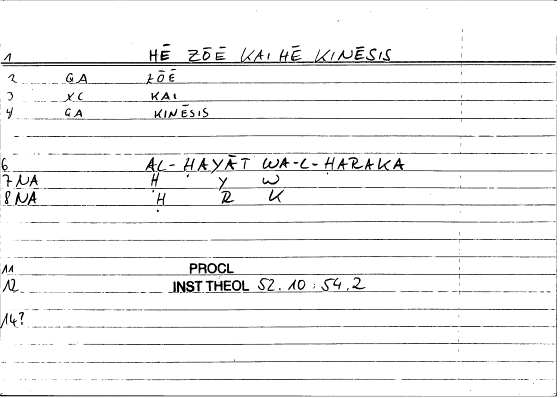 1 HĒ ZŌĒ KAI HĒ KINĒSIS
2 GA ZŌĒ
3 XC KAI
4 GA KINĒSIS
6 AL-ḤAYĀT WA-L-ḤARAKA
7 NA Ḥ Y W
8 NA Ḥ R K
11 PROCL
12 INST THEOL 52.10:54.2
14?